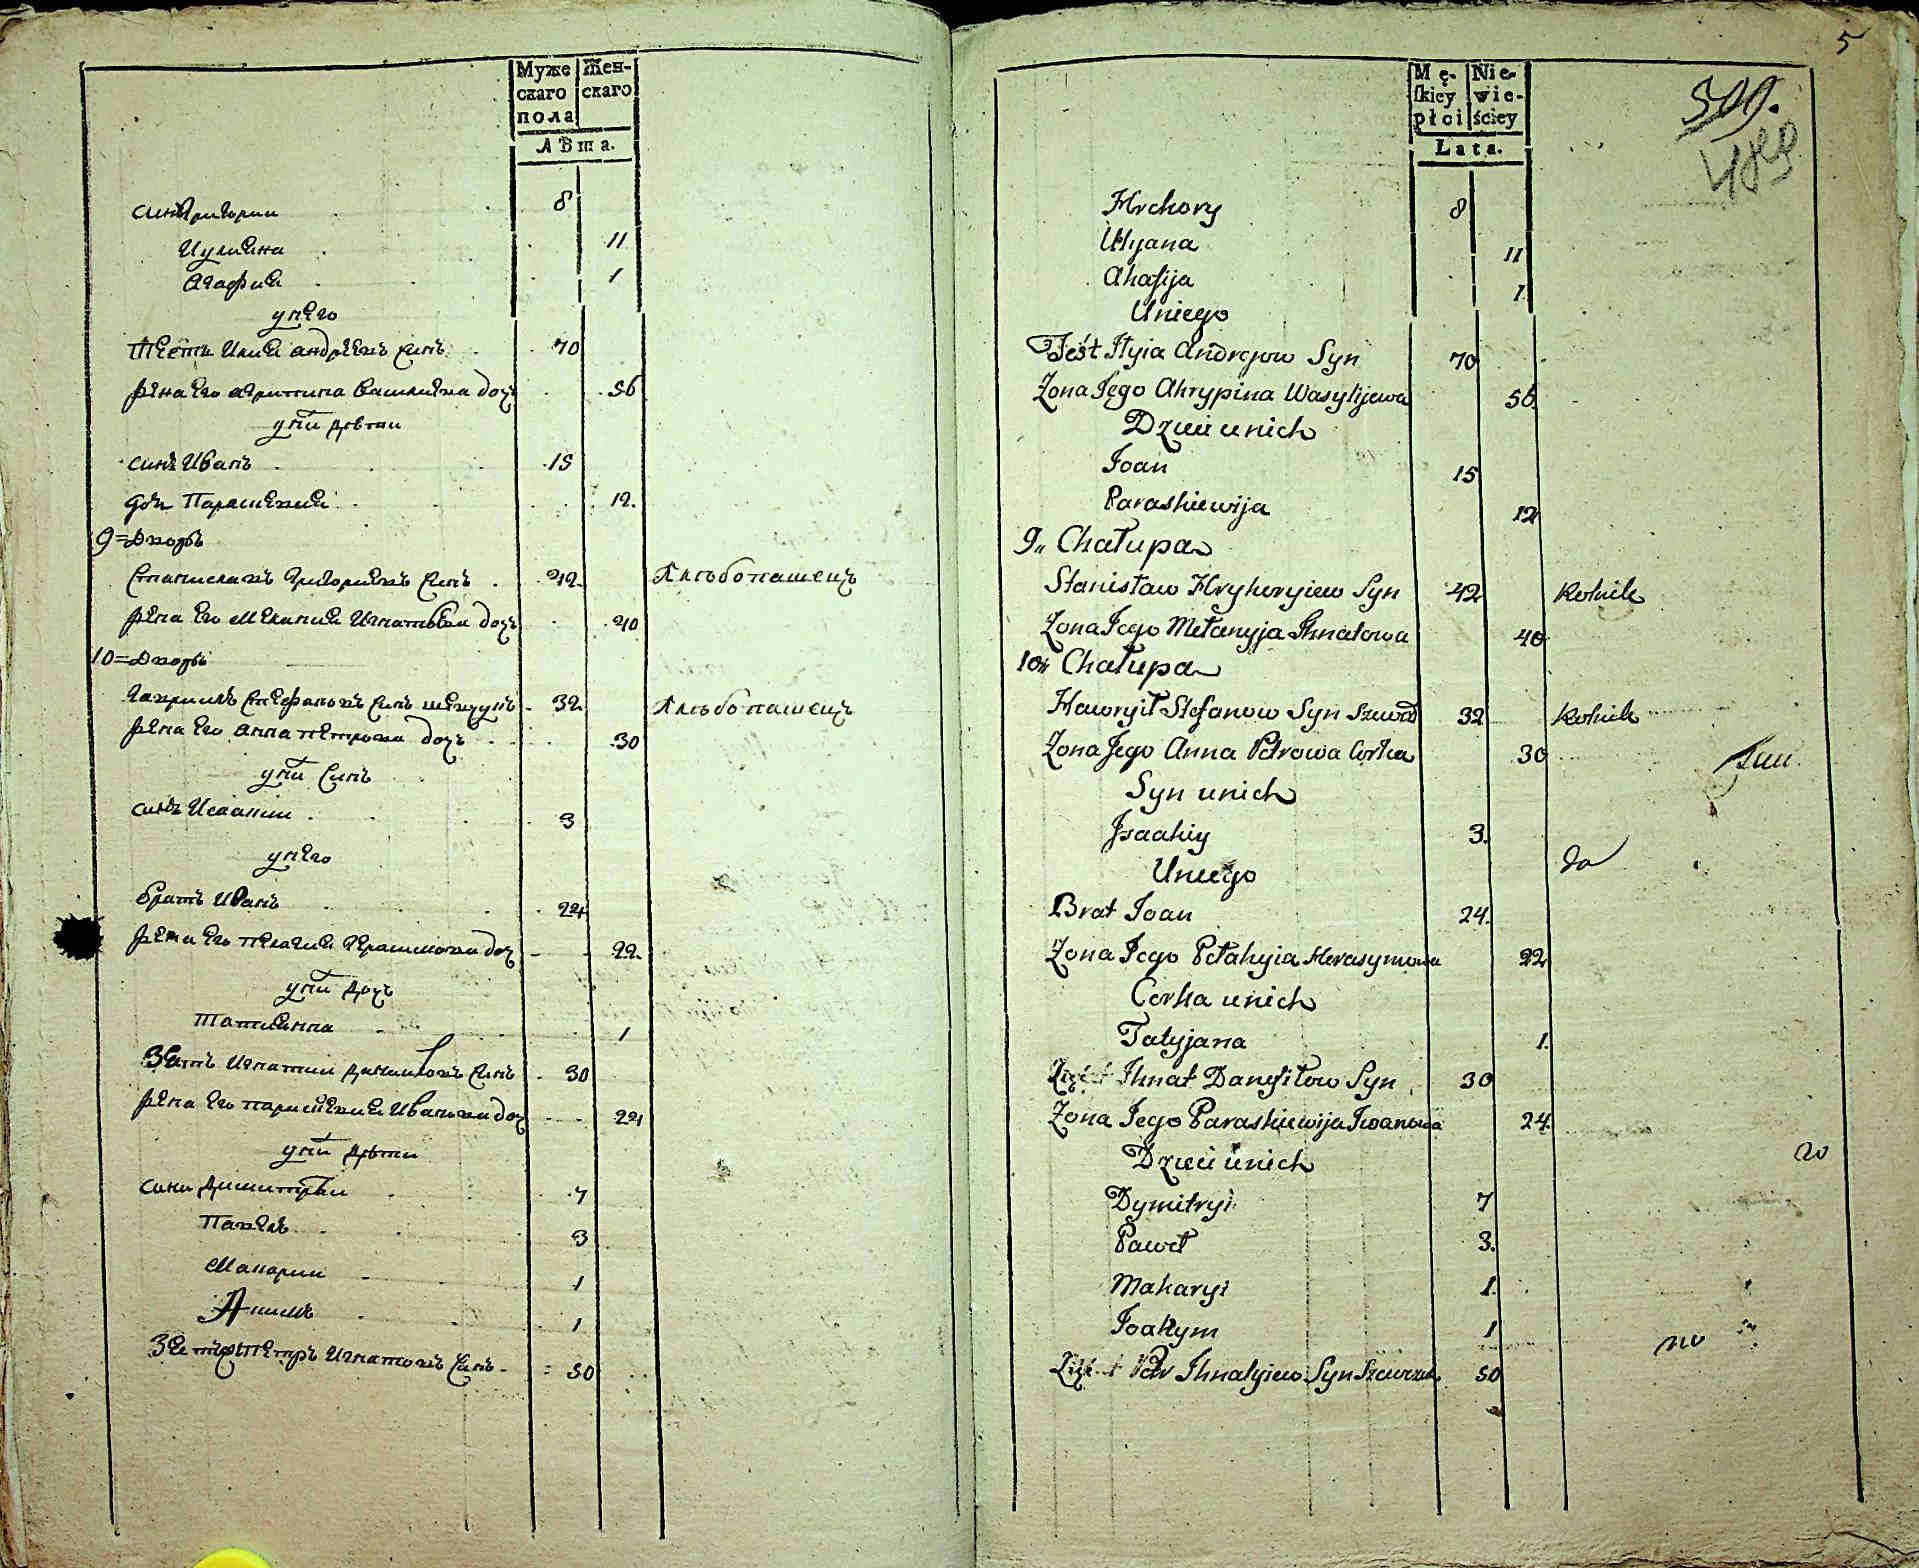 Муже Жен-
скаго скаго
пола
Лѣта.
синъ Григории 8
Иулиѧна 11
Агафиѧ 1
у него
Тесть Илиѧ андрѣевъ синъ 70
жена его агрипина василиева доч 56
у них дѣтеи
синъ Иванъ 15
доч Параскевиѧ 12.
9=Дворъ
Станиславъ Григориевъ синъ 42. Хлѣбопашецъ
жена его Меланиѧ Игнатьева доч 40
10=Дворъ
Гавриилъ Стефановъ синъ 32 Хлѣбопашецъ
жена его анна петрова доч 30
у них синъ
синъ Исаакии 3
у него
братъ Иванъ 24
жена его пелагиѧ Герасимова доч 22.
у них доч
Татиѧнна 1
Зѧть Игнатии даниловъ синъ 30
жена его параскевиѧ Иванова доч 24
у них дѣти
сини Димитрѣи 7
Павелъ 3
Макарии 1
Якимъ 1
Зѧть Петръ Игнатовъ синъ 50
5
509.
489
Mę- Nie-
skiey wie-
płci ściey
Lata.
Hrehory 8
Ulyana 11
Ahafija 1
Uniego
Teśt Ilyia Andrejow Syn 70
Zona Jego Ahrypina Wasylijewa 56.
Dzieci unich
Joan 15
Paraskiewija 12
9,, Chałupa
Stanisław Hryhoryiew Syn 42 Rolnik
Zona Jego Mełanyja Ihnatowa 40
10,, Chałupa
Hawryił Stefanow Syn 32 Rolnik
Zona Jego Anna Petrowa Corka 30
Syn unich
Jsaakiy 3.
Uniego
do
Brat Joan 24.
Zona Jego Pełahyia Herasymowa 22
Corka unich
Tatyjana 1.
Ihnat Danyiłow Syn 30
Zona Jego Paraskiewija Iwanowa 24.
Dzieci unich
Dymitryi 7
Paweł 3.
Makaryi 1.
Joakym 1
no
Piotr Ihnatyiew Syn 50